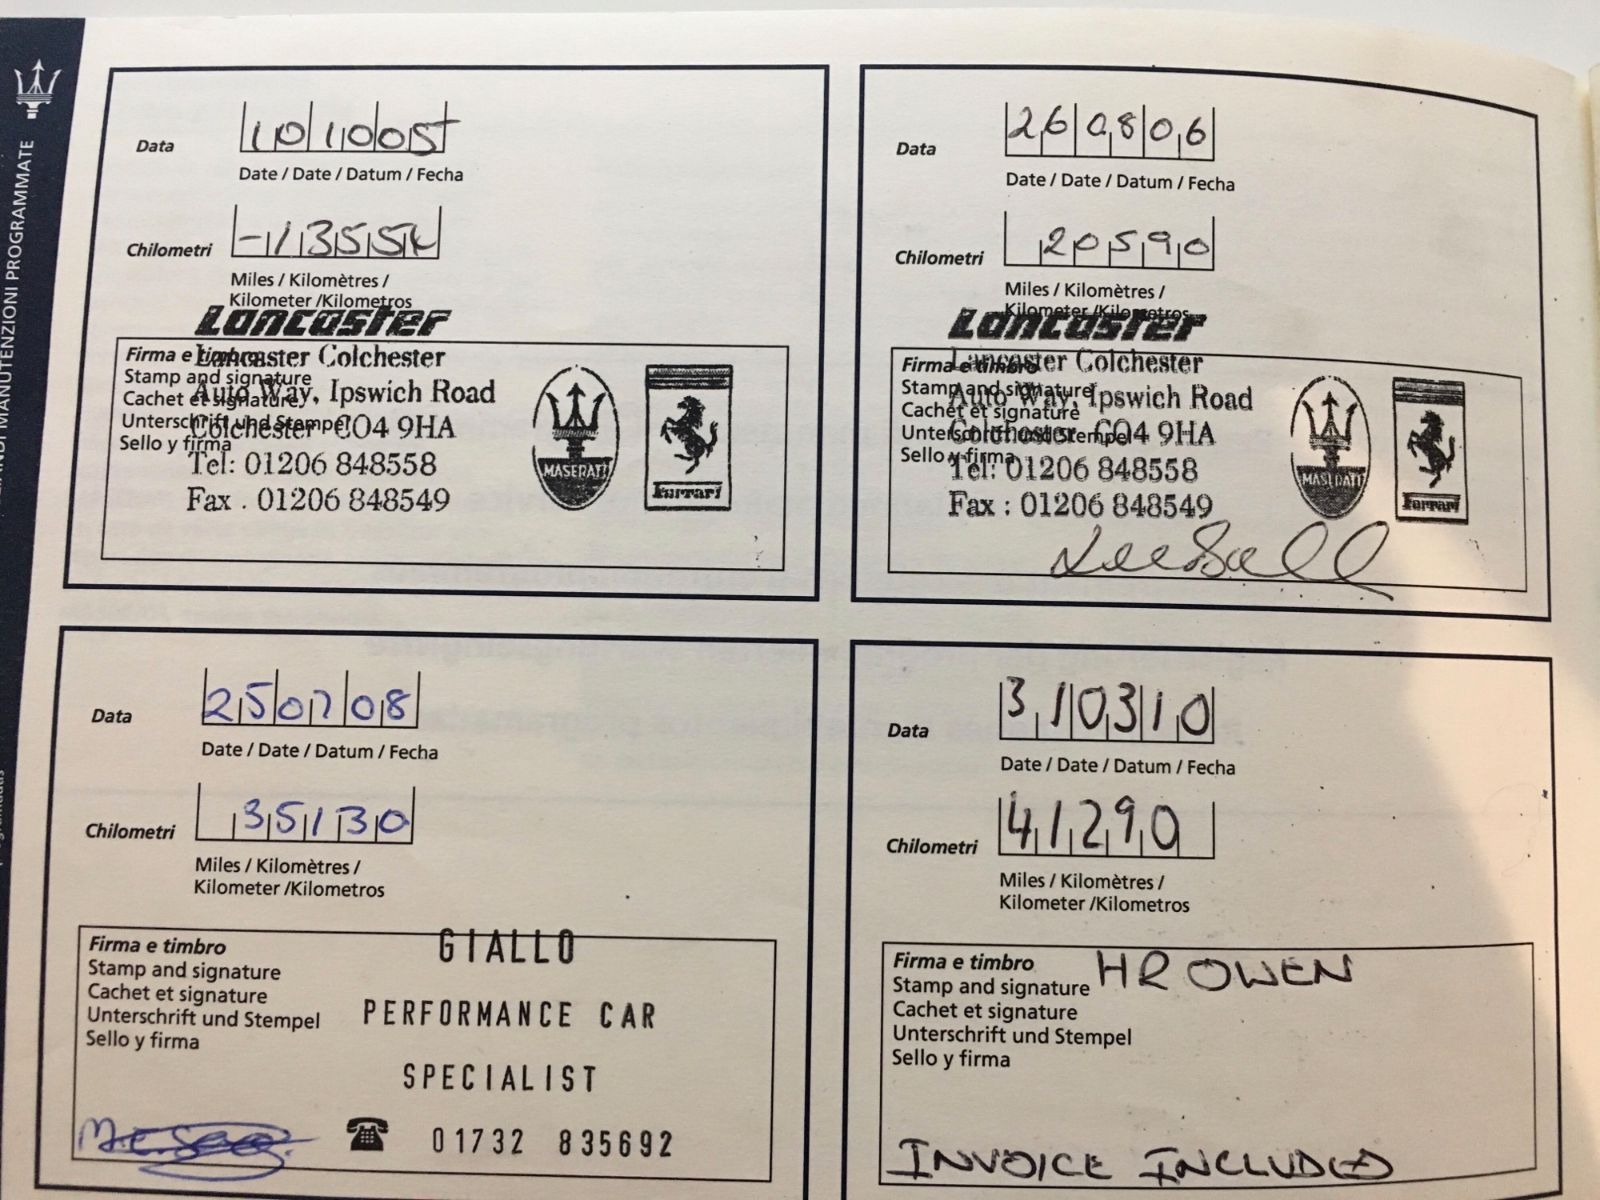 MANUTENZIONI PROGRAMMATE
Data
101005
Date / Date / Datum / Fecha
Chilometri
Miles / Kilomètres /
Kilometer /Kilometros
Lancaster
Firma e timbro
Stamp and signature
Cachet et signature
Unterschrift und Stempel
Sello y firma
Lancaster Colchester
Auto Way, Ipswich Road
Colchester CO4 9HA
Tel: 01206 848558
Fax . 01206 848549
MASERATI
Ferrari
Data
260806
Date / Date / Datum / Fecha
Chilometri
20590
Miles / Kilomètres /
Kilometer /Kilometros
Lancaster
Firma e timbro
Stamp and signature
Cachet et signature
Unterschrift und Stempel
Sello y firma
Lancaster Colchester
Auto Way, Ipswich Road
Colchester CO4 9HA
Tel: 01206 848558
Fax : 01206 848549
MASERATI
Ferrari
Data
250708
Date / Date / Datum / Fecha
Chilometri
35130
Miles / Kilomètres /
Kilometer /Kilometros
Firma e timbro
Stamp and signature
Cachet et signature
Unterschrift und Stempel
Sello y firma
GIALLO
PERFORMANCE CAR
SPECIALIST
01732 835692
Data
310310
Date / Date / Datum / Fecha
Chilometri
41290
Miles / Kilomètres /
Kilometer /Kilometros
Firma e timbro
Stamp and signature
Cachet et signature
Unterschrift und Stempel
Sello y firma
HR OWEN
INVOICE INCLUDED